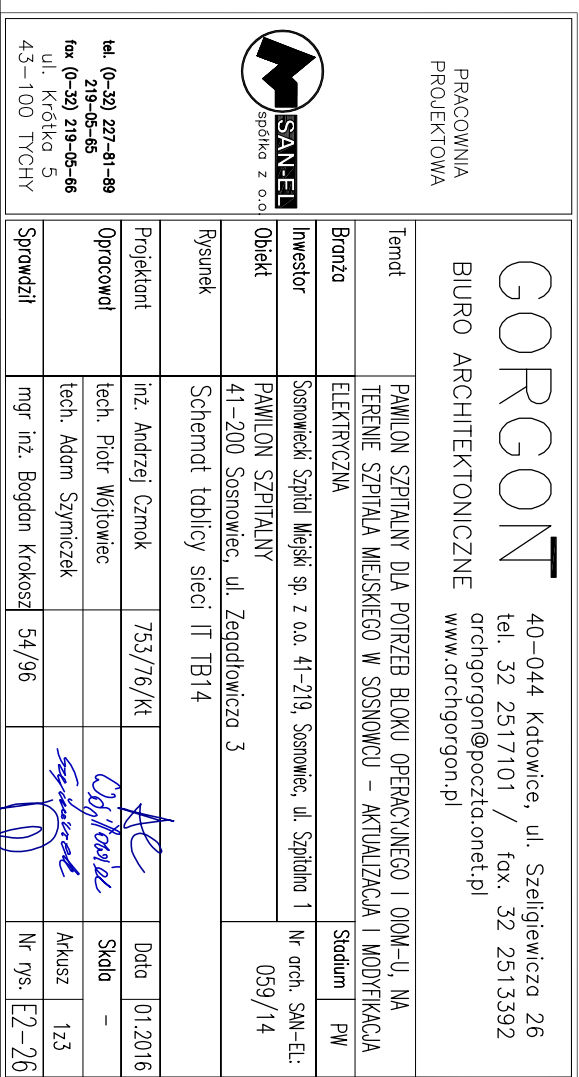 GORGOŃ
BIURO ARCHITEKTONICZNE
40-044 Katowice, ul. Szeligiewicza 26
tel. 32 2517101 / fax. 32 2513392
archgorgon@poczta.onet.pl
www.archgorgon.pl
PRACOWNIA
PROJEKTOWA
SAN-EL
spółka z o.o.
tel. (0-32) 227-81-89
219-05-65
fax (0-32) 219-05-66
ul. Krótka 5
43-100 TYCHY
Temat
PAWILON SZPITALNY DLA POTRZEB BLOKU OPERACYJNEGO I OIOM-U, NA
TERENIE SZPITALA MIEJSKIEGO W SOSNOWCU - AKTUALIZACJA I MODYFIKACJA
Branża ELEKTRYCZNA Stadium PW
Inwestor Sosnowiecki Szpital Miejski sp. z o.o. 41-219, Sosnowiec, ul. Szpitalna 1
Nr arch. SAN-EL:
059/14
Obiekt PAWILON SZPITALNY
41-200 Sosnowiec, ul. Zegadłowicza 3
Rysunek
Schemat tablicy sieci IT TB14
Projektant inż. Andrzej Czmok 753/76/Kt Data 01.2016
Opracował tech. Piotr Wójtowiec Wójtowiec Skala -
tech. Adam Szymiczek Szymiczek Arkusz 1z3
Sprawdził mgr inż. Bogdan Krokosz 54/96 Nr rys. E2-26